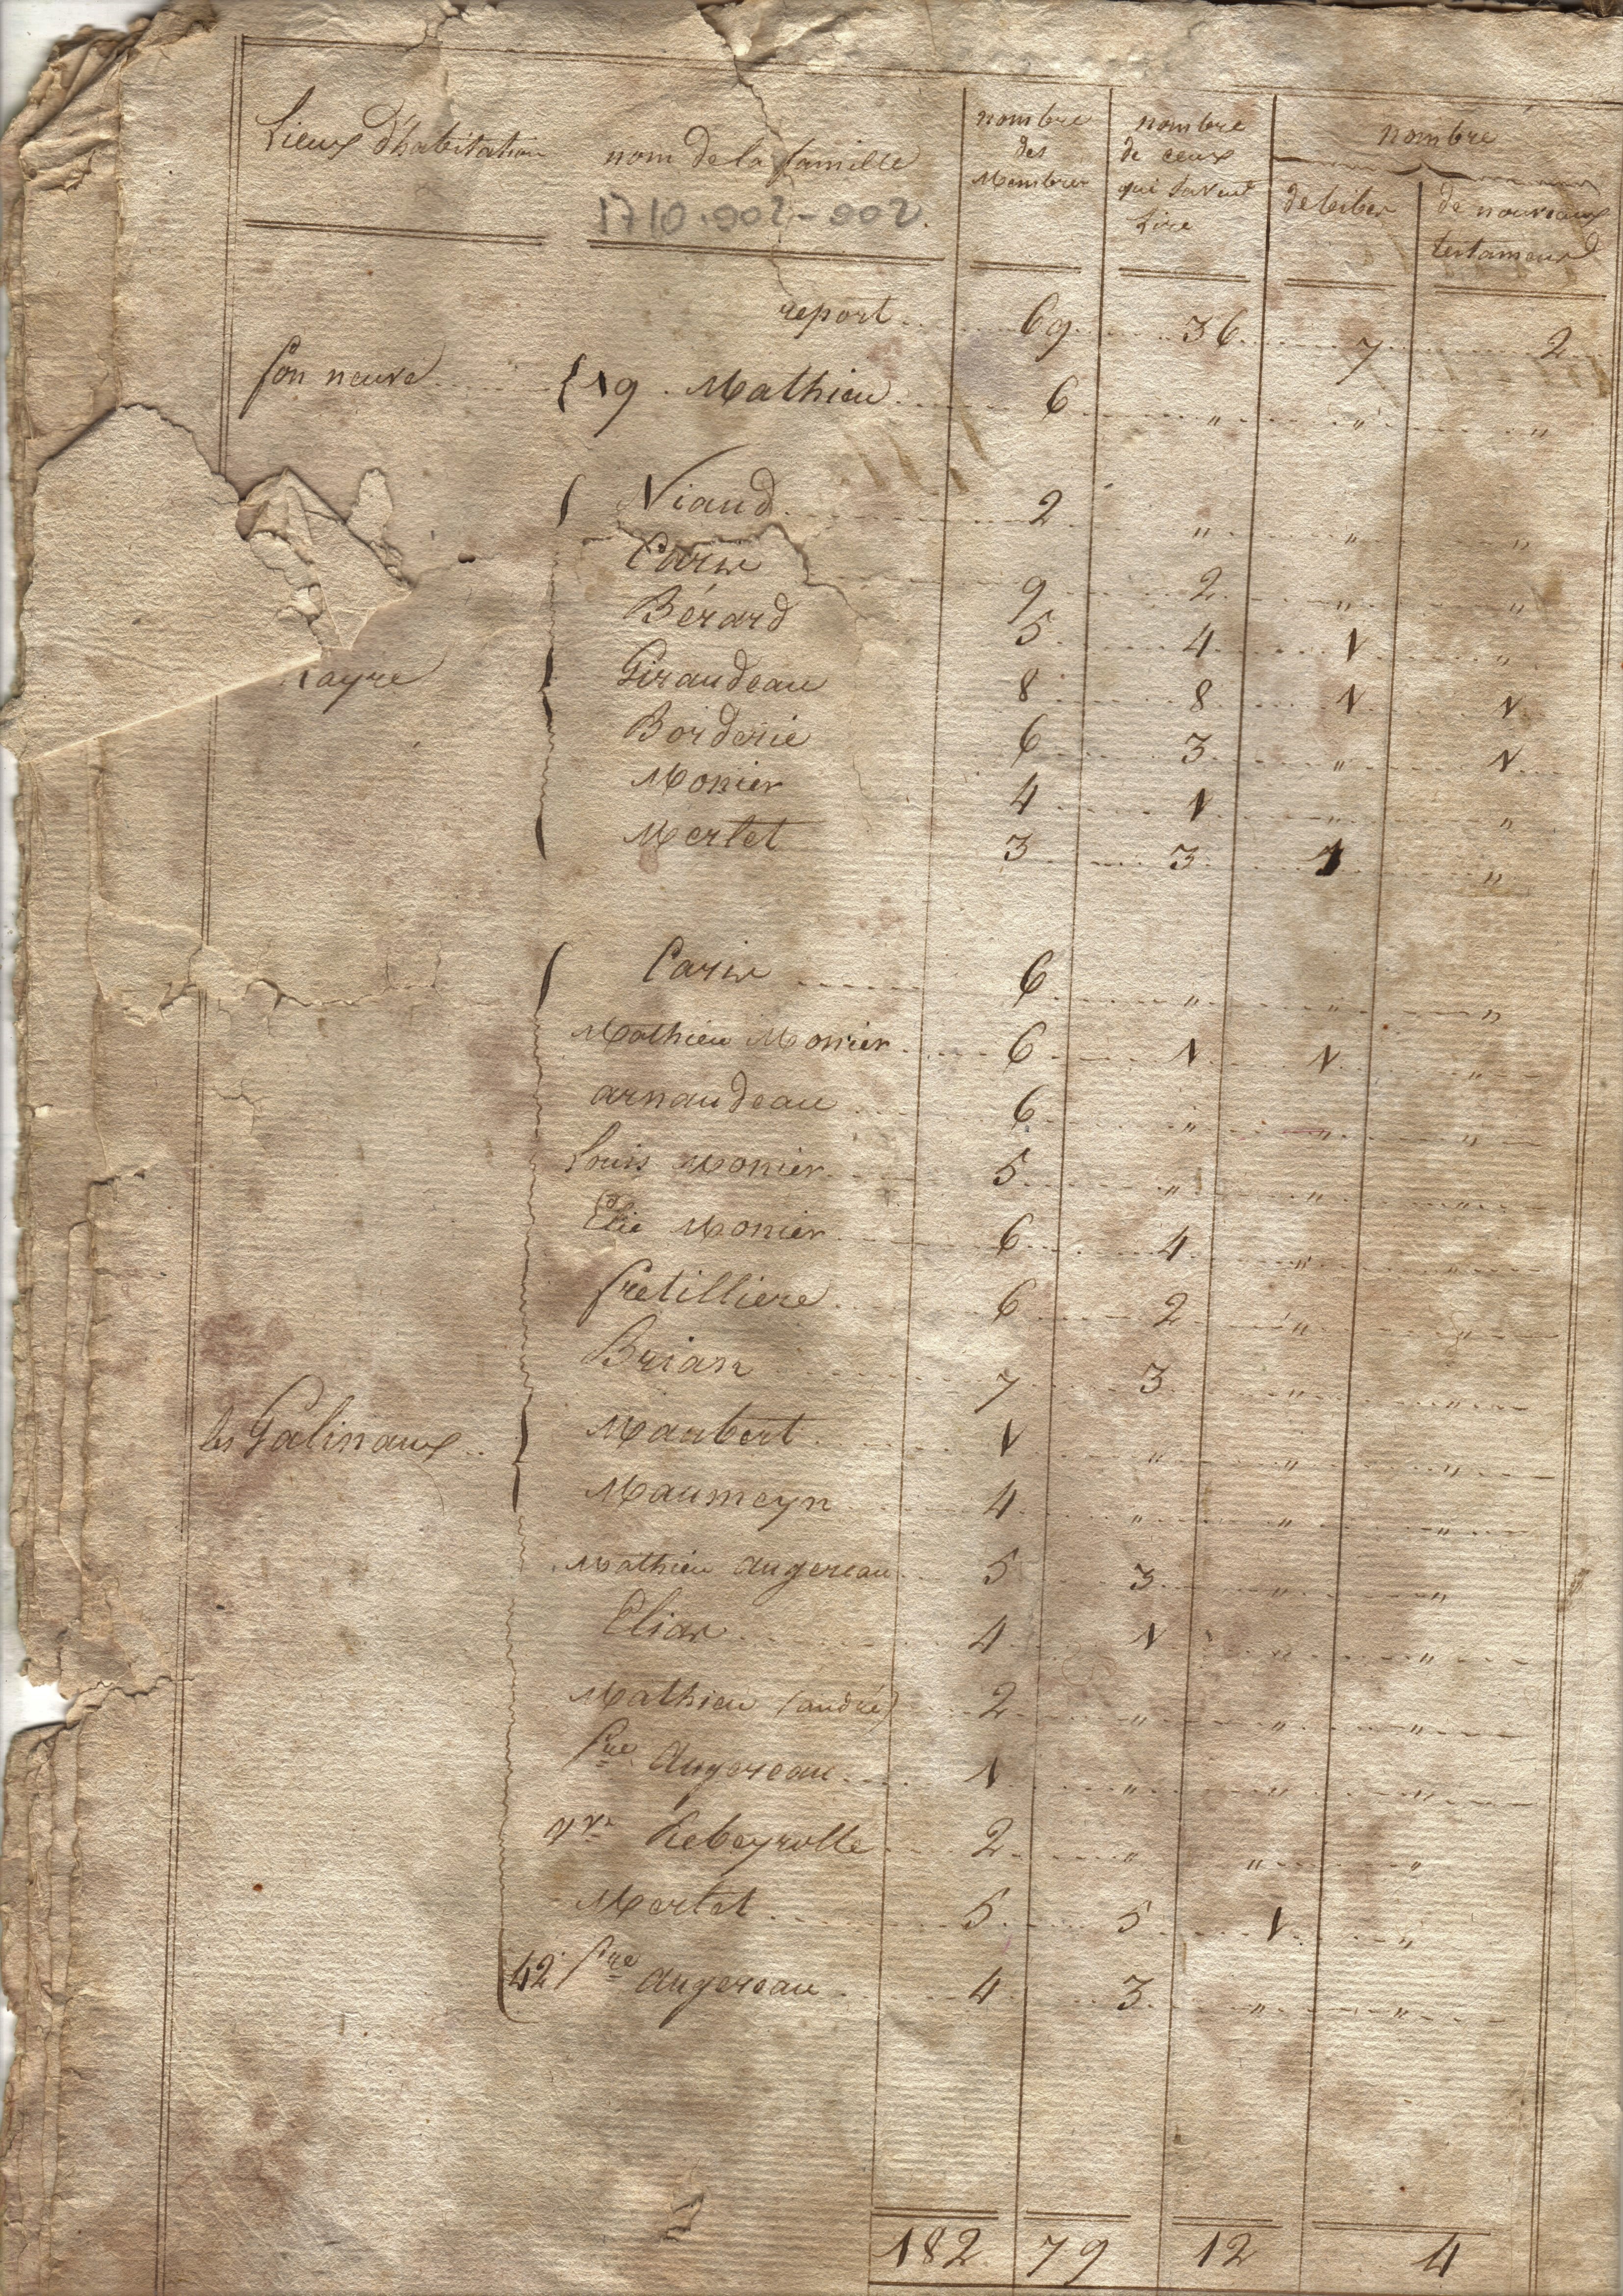 Lieux d'habitation nom de la famille nombre des Membres nombre de ceux qui savent Lire nombre de bibles de nouveaux testament
1710.902-902.
report 69 36 7 2
fon neuve { 19. Mathieu 6 " " "
Niaud 2 " " "
9 2 " "
Bérard 5 4 1 "
ayre Giraudeau 8 8 1 1
Borderie 6 3 " 1
Monier 4 1 " "
Mertet 3 3 1 "
6 " " "
Mathieu Monier 6 1 1 "
arnaudeau 6 " " "
Louis Monier 5 " " "
Elie Monier 6 4 " "
fretilliere 6 2 " "
Brian 7 3 " "
les Galinaux Maubert 1 " " "
Maumeyn 4 " " "
Mathieu Augereau 5 3 " "
Elias 4 1 " "
Mathieu (andré) 2 " " "
Augereau 1 " " "
Rebeyrolle 2 " " "
Mertet 5 5 1 "
42 Augereau 4 3 " "
182 79 12 4